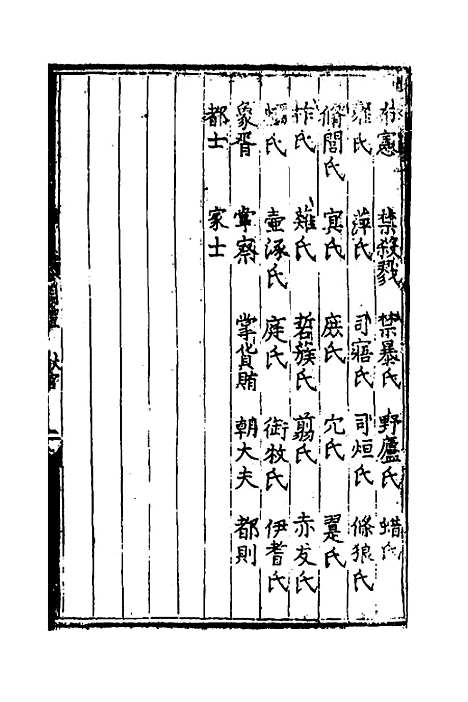 布憲　禁殺戮　禁暴氏　野廬氏　蜡氏
雍氏　萍氏　司寤氏　司烜氏　條狼氏
脩閭氏　冥氏　庶氏　穴氏　翨氏
柞氏　薙氏　硩蔟氏　翦氏　赤犮氏
蟈氏　壷涿氏　庭氏　銜枚氏　伊耆氏
象胥　掌察　掌貨賄　朝大夫　都則
都士　家士